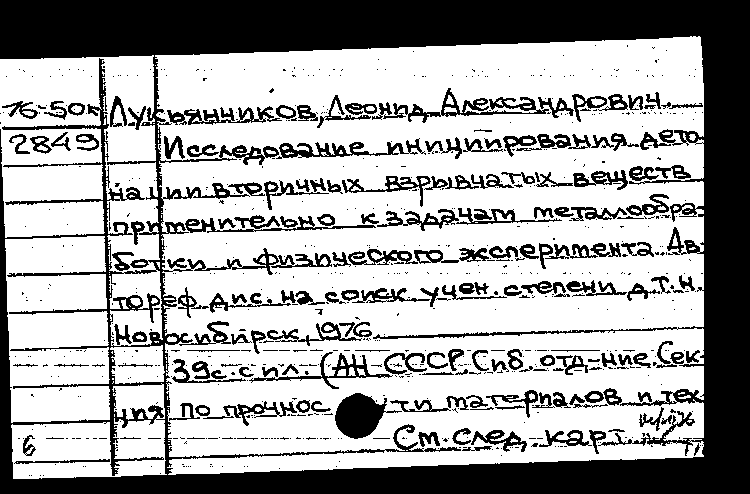 76-50к Лукьянчиков, Леонид Александрович.
2849 Исследование инициирования дето-
нации вторичных взрывчатых веществ
применительно к задачам металлообра-
ботки и физического эксперимента. Ав-
тореф. дис. на соиск. учен. степени д.т.н.
Новосибирск, 1976.
39с. с ил. (АН СССР. Сиб. отд-ние. Сек-
ция по прочности материалов и тех
6 См. след. карт.